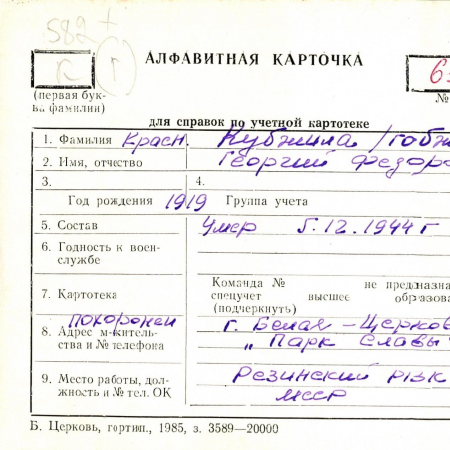 582 +
К Г
АЛФАВИТНАЯ КАРТОЧКА
(первая бук-
ва фамилии)
№
для справок по учетной картотеке
1. Фамилия Красн. Кубжина /гобж
2. Имя, отчество Георгий Федоро
3. 4.
Год рождения 1919 Группа учета
5. Состав Умер 5.12.1944 г
6. Годность к воен-
службе
7. Картотека
Команда № не предназна
спецучет высшее образова
(подчеркнуть)
похоронен
8. Адрес м-жительст-
ва и № телефона
г. Белая-Церков
„Парк Славы
9. Место работы, дол-
жность и № тел. ОК
Резинский
МССР
Б. Церковь, гортип., 1985, з. 3589—20000